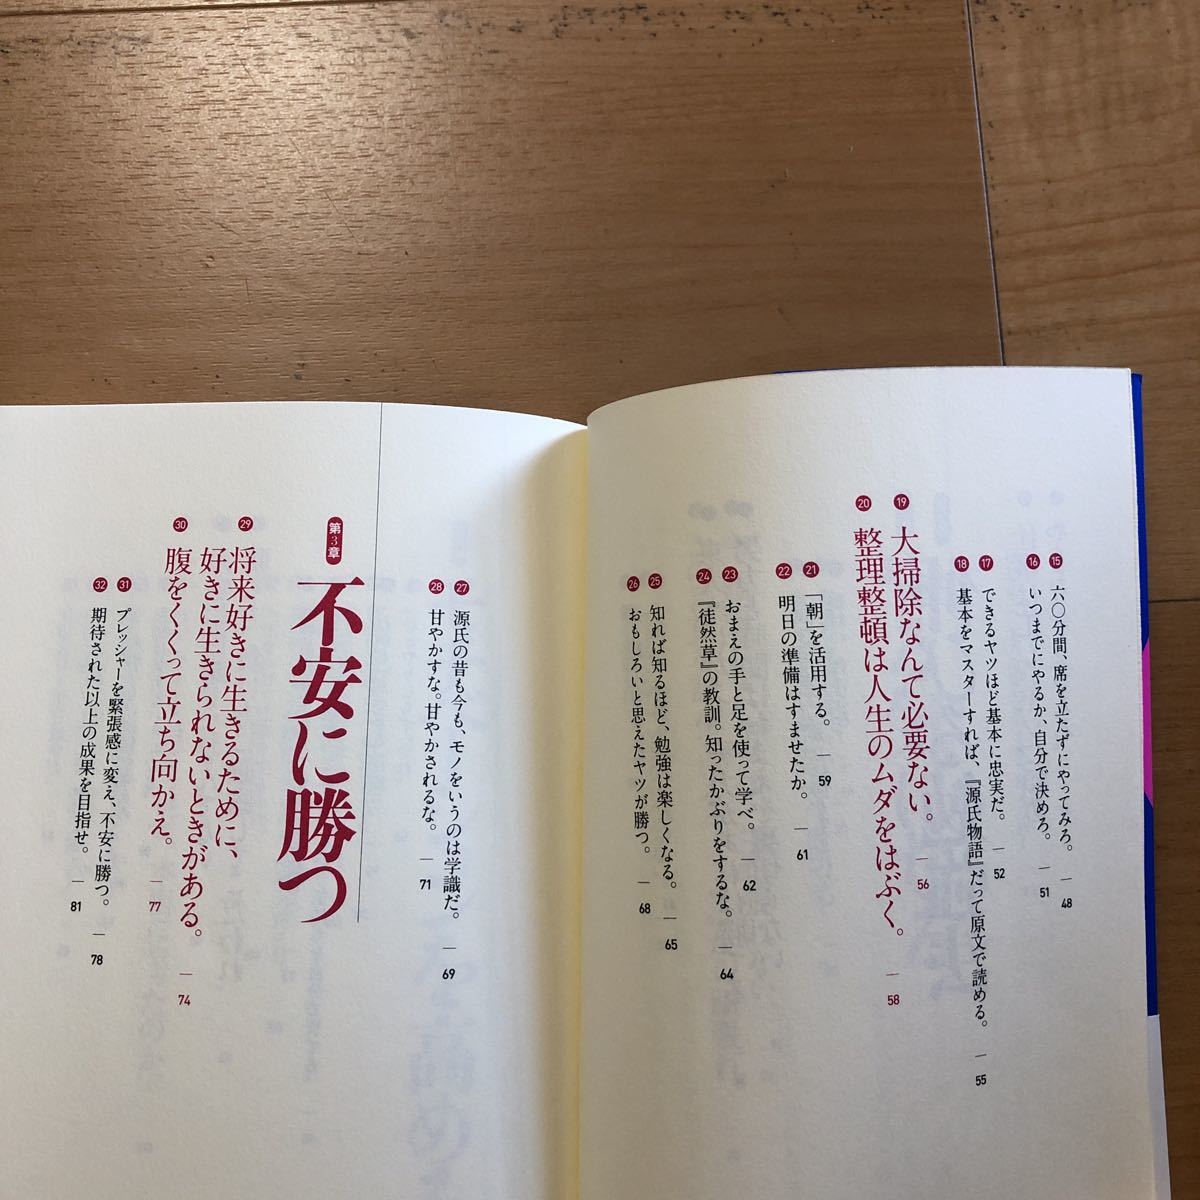 15 六〇分間、席を立たずにやってみろ。 — 48
16 いつまでにやるか、自分で決めろ。 — 51
17 できるヤツほど基本に忠実だ。 — 52
18 基本をマスターすれば、『源氏物語』だって原文で読める。 — 55
19 大掃除なんて必要ない。 — 56
20 整理整頓は人生のムダをはぶく。 — 58
21 「朝」を活用する。 — 59
22 明日の準備はすませたか。 — 61
23 おまえの手と足を使って学べ。 — 62
24 『徒然草』の教訓。知ったかぶりをするな。 — 64
25 知れば知るほど、勉強は楽しくなる。 — 65
26 おもしろいと思えたヤツが勝つ。 — 68
27 源氏の昔も今も、モノをいうのは学識だ。 — 69
28 甘やかすな。甘やかされるな。 — 71
第3章 不安に勝つ
29 将来好きに生きるために、
好きに生きられないときがある。 — 74
30 腹をくくって立ち向かえ。 — 77
31 プレッシャーを緊張感に変え、不安に勝つ。 — 78
32 期待された以上の成果を目指せ。 — 81